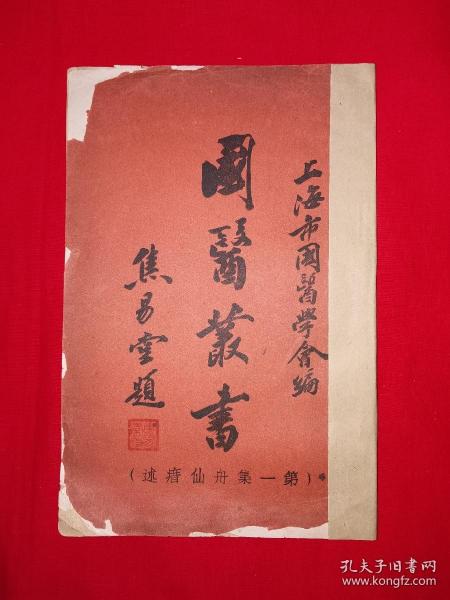 上海市國醫學會編
國醫叢書
焦易堂題
(第一集舟仙瘄述)
孔夫子旧书网
www.kongfz.com